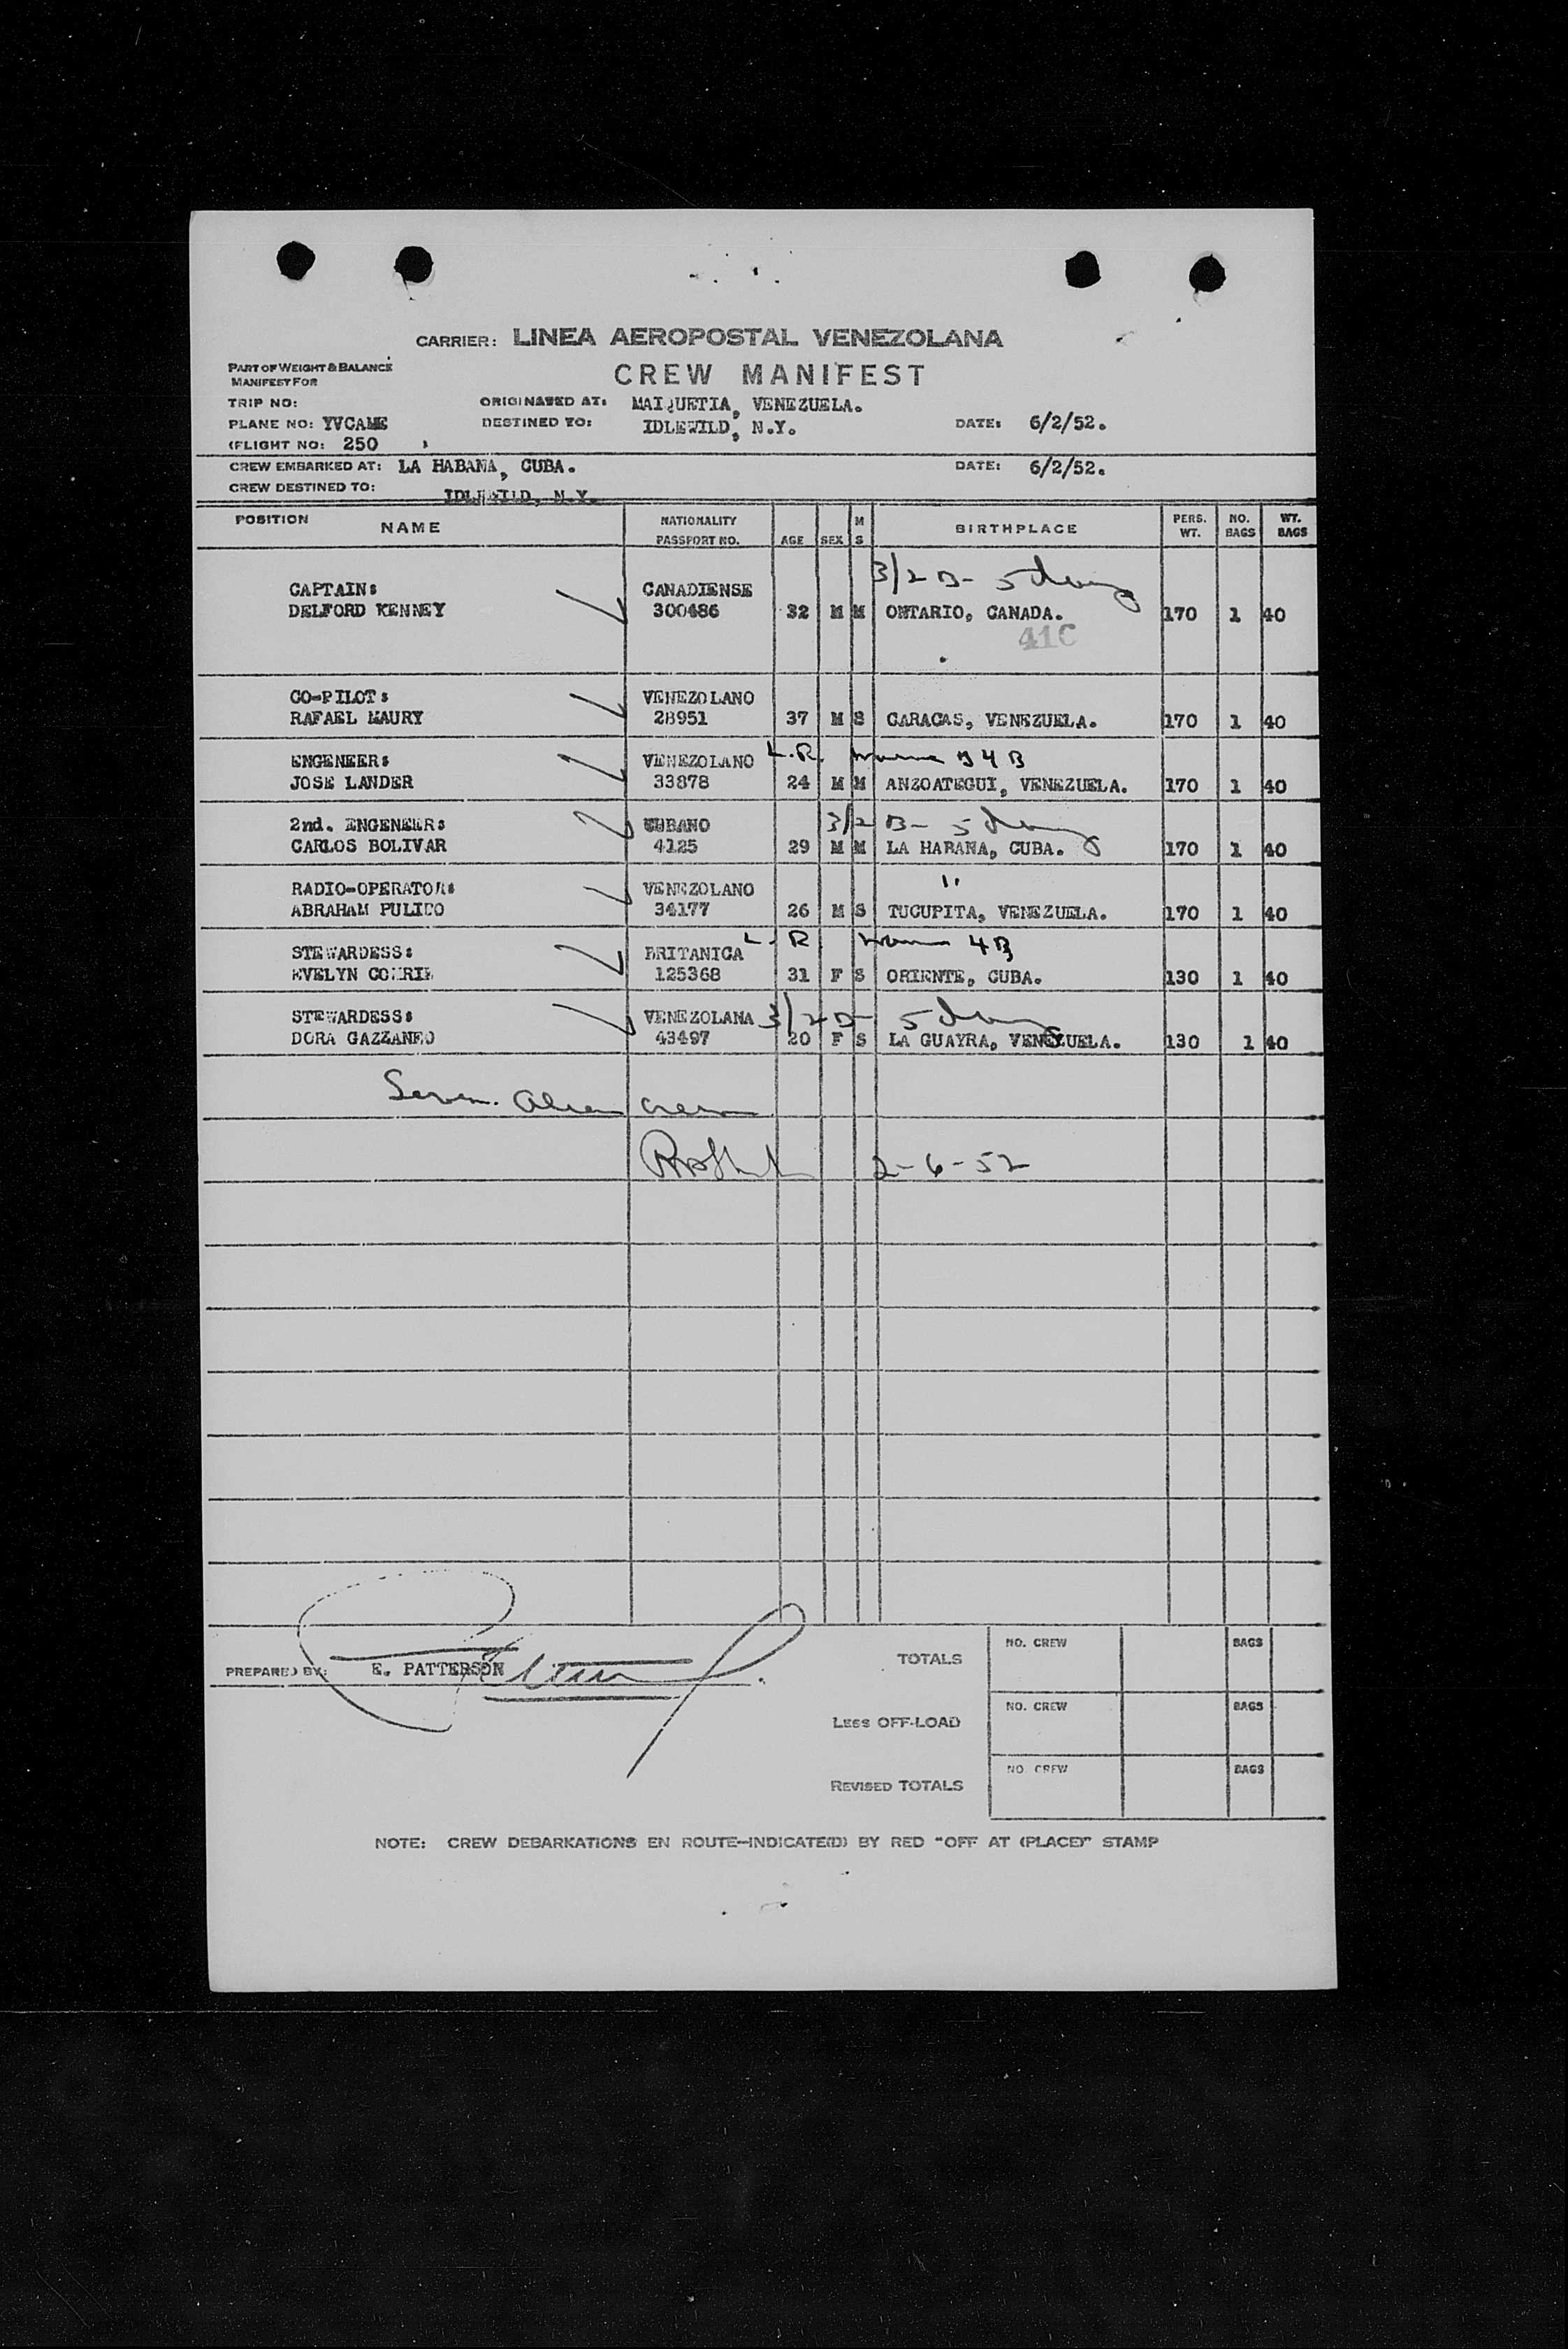 CARRIER: LINEA AEROPOSTAL VENEZOLANA
PART OF WEIGHT & BALANCE
MANIFEST FOR
CREW MANIFEST
TRIP NO: ORIGINATED AT: MAIQUETIA, VENEZUELA.
PLANE NO: YVCAME DESTINED TO: IDLEWILD, N.Y. DATE: 6/2/52.
(FLIGHT NO: 250 )
CREW EMBARKED AT: LA HABANA, CUBA. DATE: 6/2/52.
CREW DESTINED TO: IDLEWILD, N.Y.
POSITION NAME NATIONALITY PASSPORT NO. AGE SEX M S BIRTHPLACE PERS. WT. NO. BAGS WT. BAGS
3/2 B- 5 days
CAPTAIN: CANADIENSE
DELFORD KENNEY 300486 32 M M ONTARIO, CANADA. 170 1 40
41C
CO-PILOT: VENEZOLANO
RAFAEL MAURY 28951 37 M S CARACAS, VENEZUELA. 170 1 40
ENGENEER: VENEZOLANO L.R. 4 B
JOSE LANDER 33878 24 M M ANZOATEGUI, VENEZUELA. 170 1 40
2nd. ENGENEER: CUBANO 3/2 B- 5 days
CARLOS BOLIVAR 4125 29 M M LA HABANA, CUBA. 170 1 40
RADIO-OPERATOR: VENEZOLANO "
ABRAHAM PULIDO 34177 26 M S TUCUPITA, VENEZUELA. 170 1 40
STEWARDESS: BRITANICA L. R 4B
EVELYN 125368 31 F S ORIENTE, CUBA. 130 1 40
STEWARDESS: VENEZOLANA 3/2 B- 5 days
DORA GAZZANEO 43497 20 F S LA GUAYRA, VENEZUELA. 130 1 40
Seven alien crew
2-6-52
PREPARED BY: E. PATTERSON
TOTALS NO. CREW BAGS
LESS OFF-LOAD NO. CREW BAGS
REVISED TOTALS NO. CREW BAGS
NOTE: CREW DEBARKATIONS EN ROUTE—INDICATE(D) BY RED "OFF AT (PLACE)" STAMP